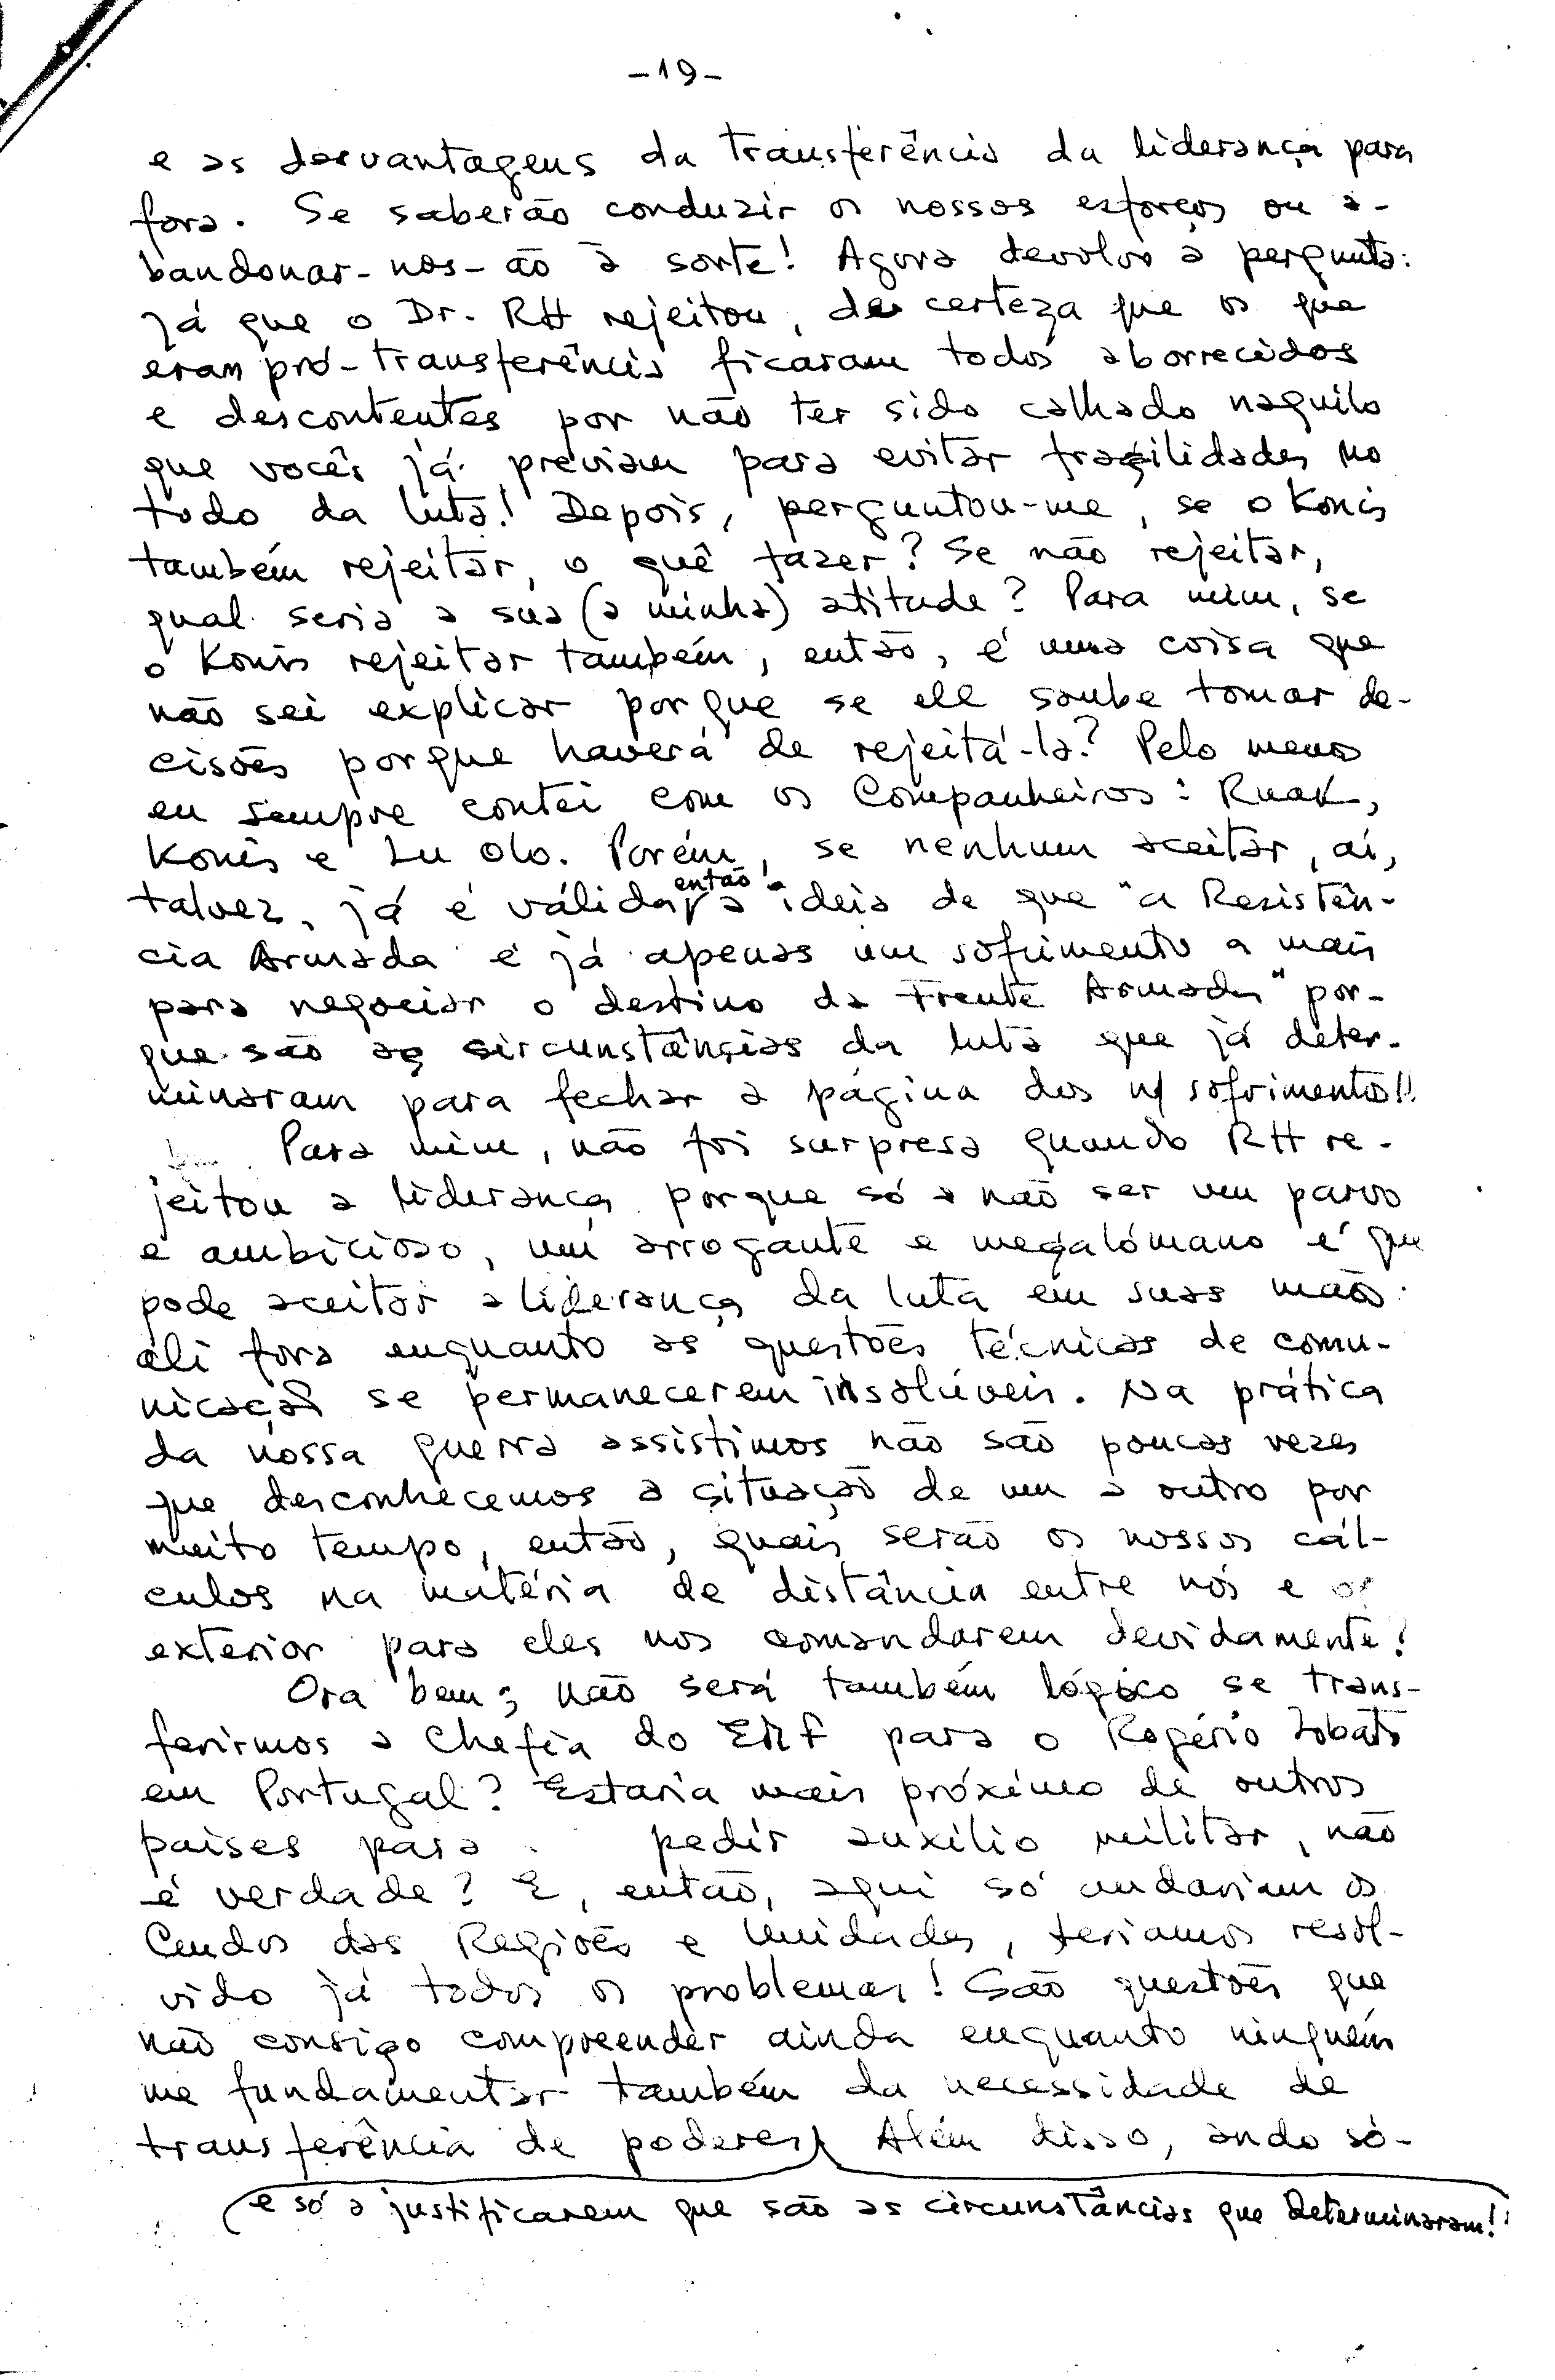 -19-
e as desvantagens da transferência da liderança para
fora. Se saberão conduzir os nossos esforços ou a-
bandonar-nos-ão à sorte! Agora devolvo a pergunta:
já que o Dr. RH rejeitou, de certeza que os que
eram pró-transferência ficaram todos aborrecidos
e descontentes por não ter sido calhado naquilo
que vocês já previam para evitar fragilidades no
todo da luta! Depois, perguntou-me, se o Konis
também rejeitar, o quê fazer? Se não rejeitar,
qual seria a sua (a minha) atitude? Para mim, se
o Konis rejeitar também, então, é uma coisa que
não sei explicar porque se ele soube tomar de-
cisões porque haverá de rejeitá-la? Pelo menos
eu sempre contei com os Companheiros: Ruak,
Konis e Lu Olo. Porém, se nenhum aceitar, aí,
talvez, já é válida então a ideia de que "a Resistên-
cia Armada é já apenas um sofrimento a mais
para negociar o destino da Frente Armada" por-
que são as circunstâncias da luta que já deter-
minaram para fechar a página dos n/ sofrimentos!!
Para mim, não foi surpresa quando RH re-
jeitou a liderança porque só a não ser um parvo
e ambicioso, um arrogante e megalómano é que
pode aceitar a liderança da luta em suas mãos
ali fora enquanto as questões técnicas de comu-
nicação se permanecerem insolúveis. Na prática
da nossa guerra assistimos não são poucas vezes
que desconhecemos a situação de um a outro por
muito tempo, então, quais serão os nossos cál-
culos na matéria de distância entre nós e o
exterior para eles nos comandarem devidamente?
Ora bem; não será também lógico se trans-
ferirmos a Chefia do EMF para o Rogério Lobato
em Portugal? Estaria mais próximo de outros
países para pedir auxílio militar, não
é verdade? E, então, aqui só andariam os
Cmdos das Regiões e Unidades, teriamos resol-
vido já todos os problemas! São questões que
não consigo compreender ainda enquanto ninguém
me fundamentar também da necessidade de
transferência de poderes Além disso, ando só-
e só a justificarem que são as circunstâncias que determinaram!